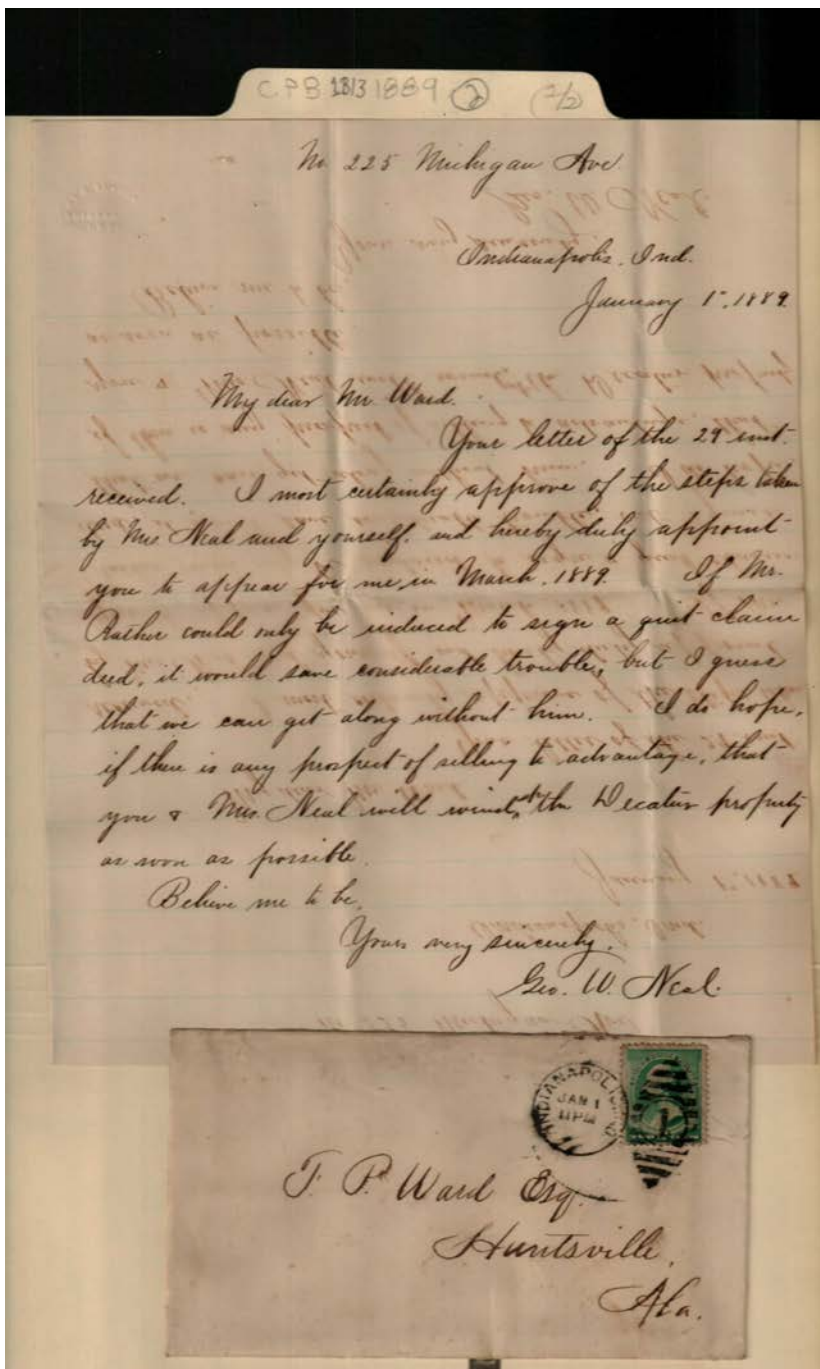 C.P.B 1813 1889 ② (2/2)
No 225 Michigan Ave.
Indianapolis, Ind.
January 1st, 1889.
My dear Mr. Ward.
Your letter of the 29 inst.
received. I most certainly approve of the steps taken
by Mrs Neal and yourself. and hereby duly appoint
you to appear for me, in March, 1889. If Mr.
Rather could only be induced to sign a quit claim
deed, it would save considerable trouble, but I guess
that we can get along without him. I do hope,
if there is any prospect of selling to advantage, that
you & Mrs. Neal will wind up the Decatur property
as soon as possible.
Believe me to be,
Yours very sincerely.
Geo. W. Neal.
INDIANAPOLIS, IND.
JAN 1
11 PM
1
T. P. Ward Esq.
Huntsville,
Ala.